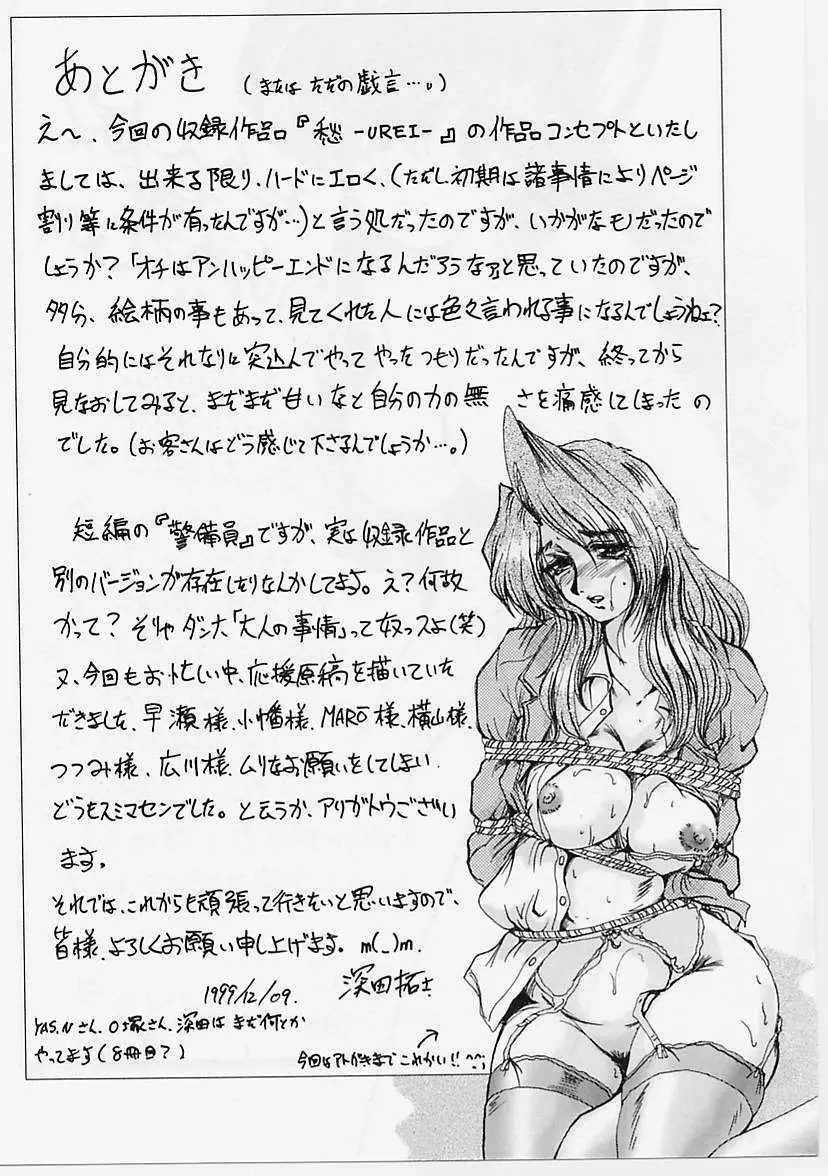 あとがき (またはただの戯言…。)
え〜、今回の収録作品『愁 -UREI- 』の作品コンセプトといたし
ましては、出来る限り、ハードにエロく、(ただし初期は諸事情によりページ
割り等に条件が有ったんですが…)と言う処だったのですが、いかがなモノだったので
しょうか?「オチはアンハッピーエンドになるんだろうなァ」と思っていたのですが、
多分、絵柄の事もあって、見てくれた人には色々言われる事になるんでしょうねェ?
自分的にはそれなりに突込んでやって やったつもりだったんですが、終ってから
見なおしてみると、まだまだ甘いなと自分の力の無 さを痛感してしまった の
でした。(お客さんはどう感じて下さるんでしょうか…。)
短編の『警備員』ですが、実は収録作品と
別のバージョンが存在したりなんかしてます。え?何故
かって?そりゃダンナ「大人の事情」って奴っスよ(笑)
又、今回もお忙しい中、応援原稿を描いていた
だきました、早瀬様、小幡様、MARO様、横山様、
つつみ様、広川様、ムリなお願いをしてしまい
どうもスミマセンでした。と云うか、アリガトウござい
ます。
それでは、これからも頑張って行きたいと思いますので、
皆様、よろしくお願い申し上げます。m(_)m.
1999/12/09. 深田拓士
YAS.Nさん、O塚さん、深田はまだ何とか
やってます(8冊目?)
今回はアトがきまでこれかい!! ^^;